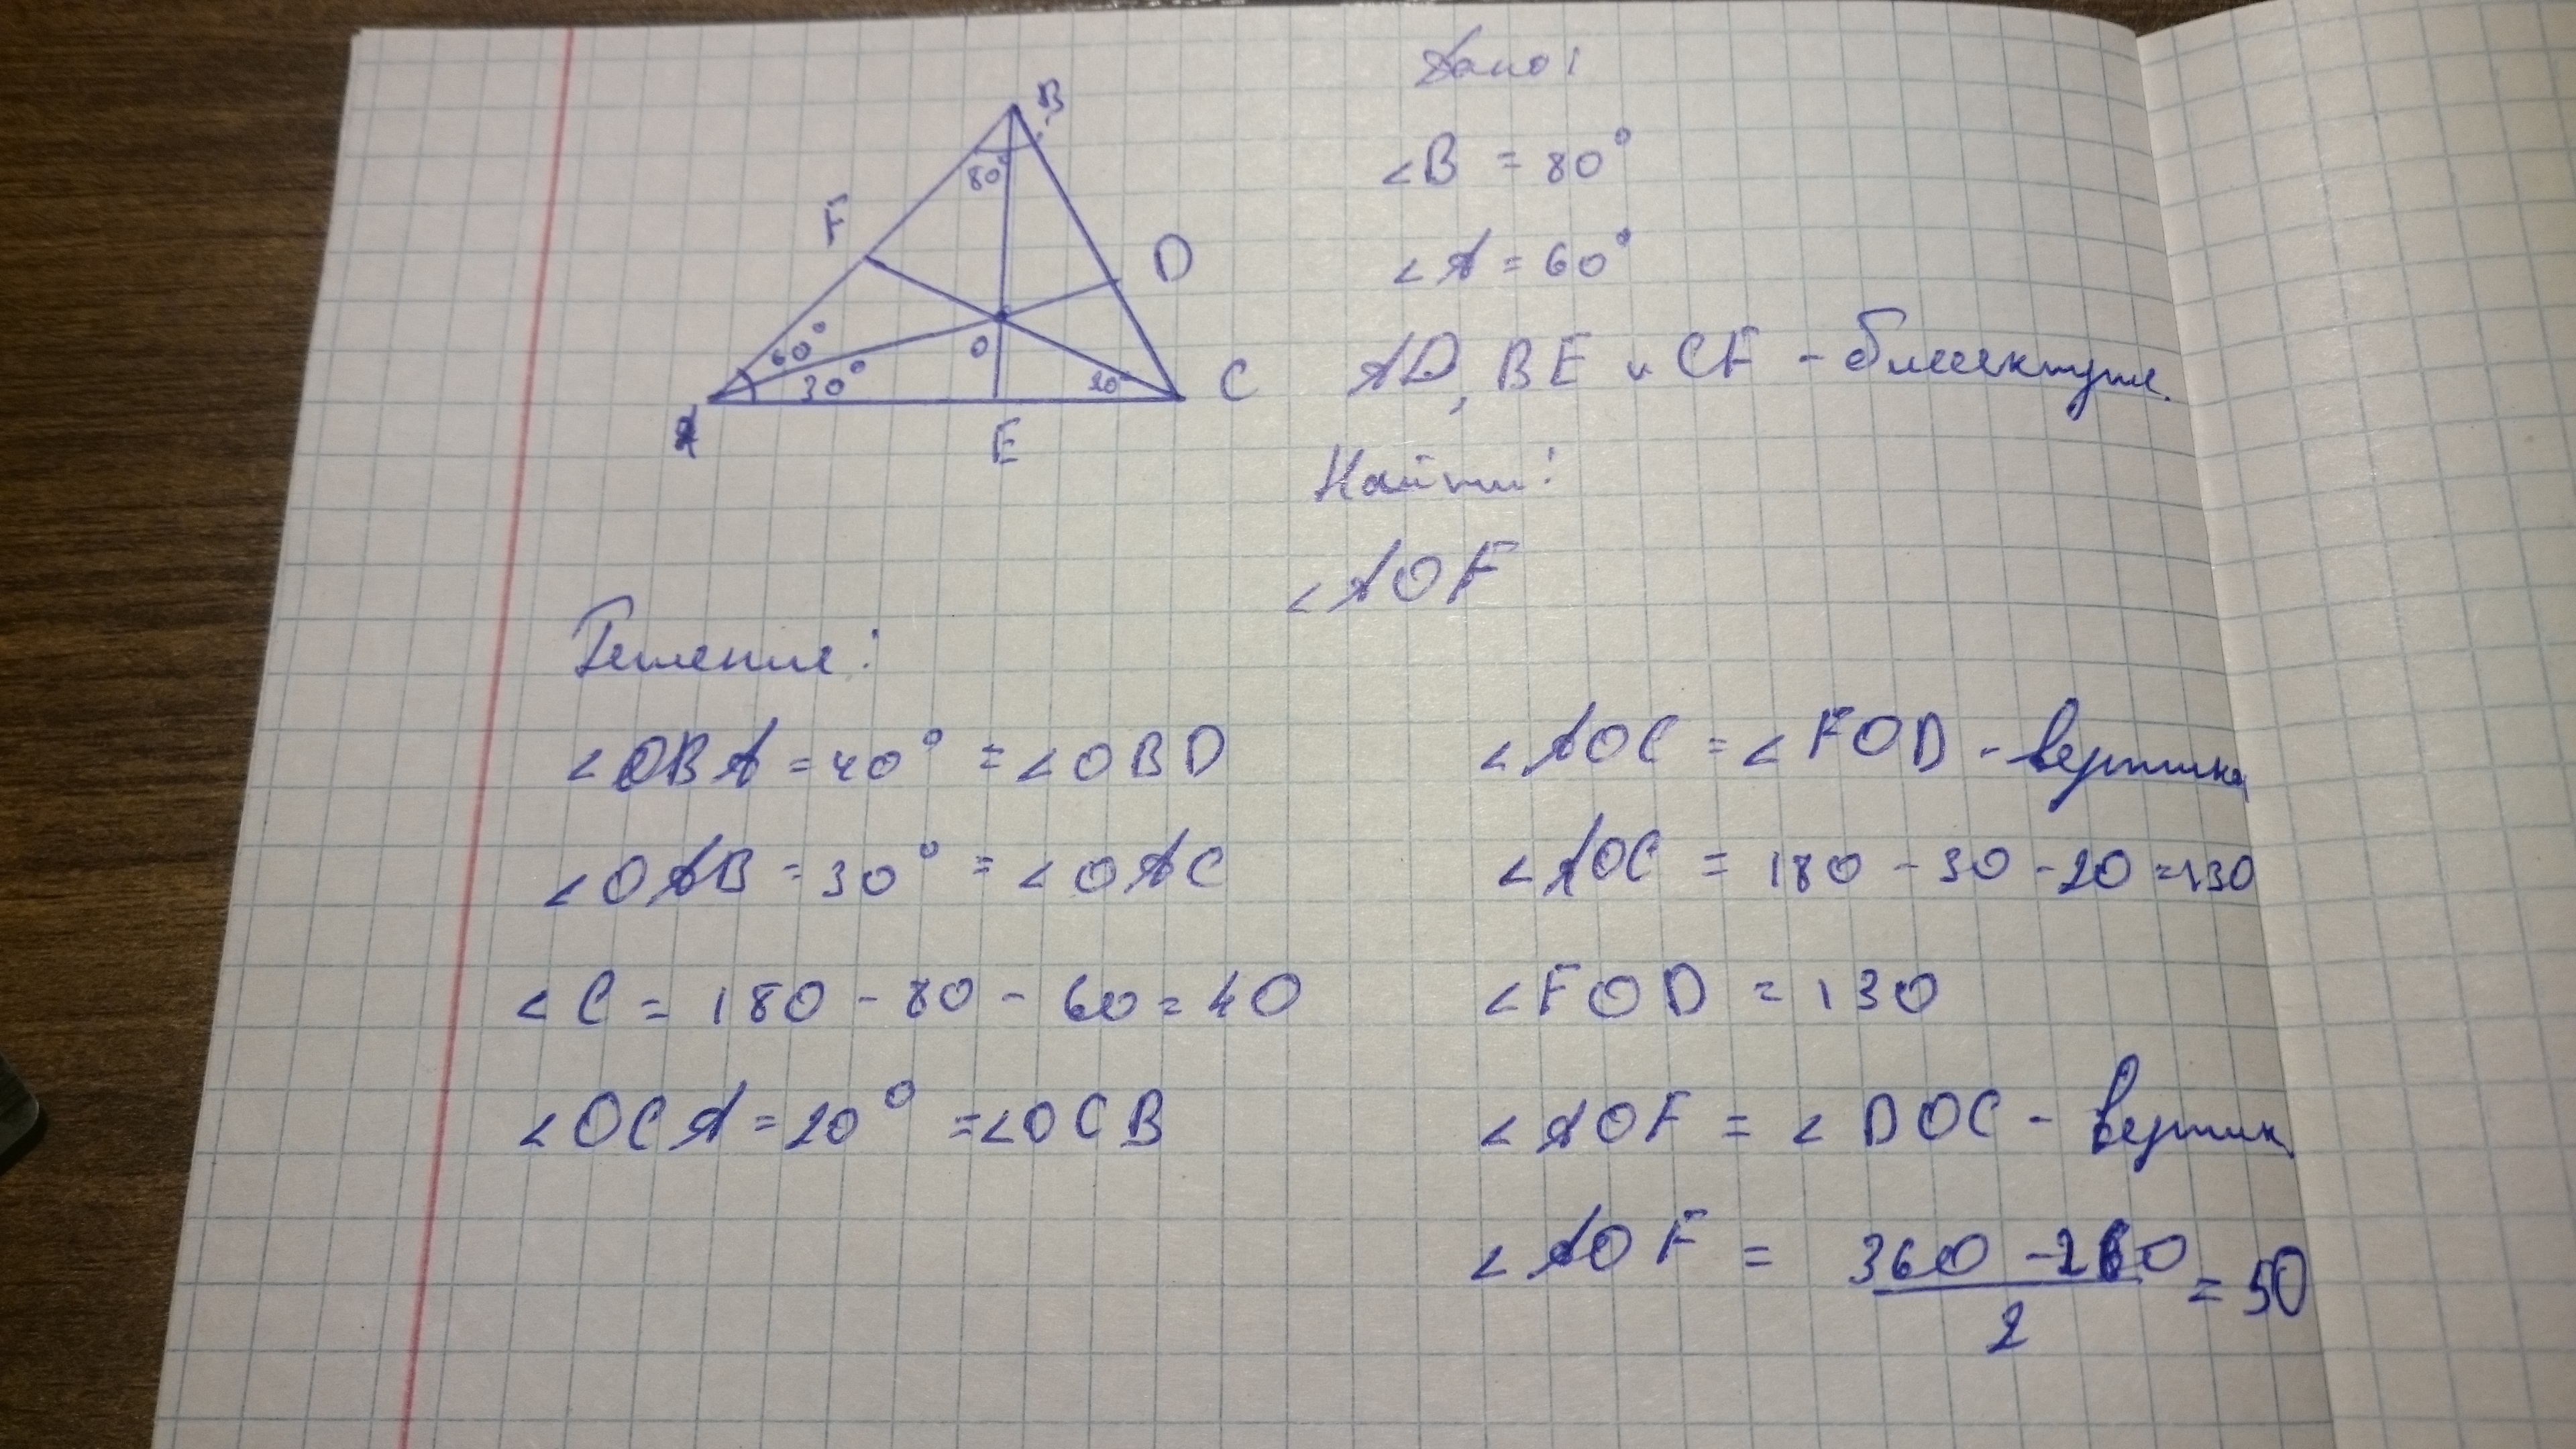 B
80°
F
D
60°
30°
O
20
A
E
C
Дано:
∠B = 80°
∠A = 60°
AD, BE и CF - биссектрисы.
Найти:
∠AOF
Решение:
∠OBA = 40° = ∠OBD
∠OAB = 30° = ∠OAC
∠C = 180 - 80 - 60 = 40
∠OCA = 20° = ∠OCB
∠AOC = ∠FOD - вертика
∠AOC = 180 - 30 - 20 = 130
∠FOD = 130
∠AOF = ∠DOC - вертик
∠AOF = (360 - 260)/2 = 50